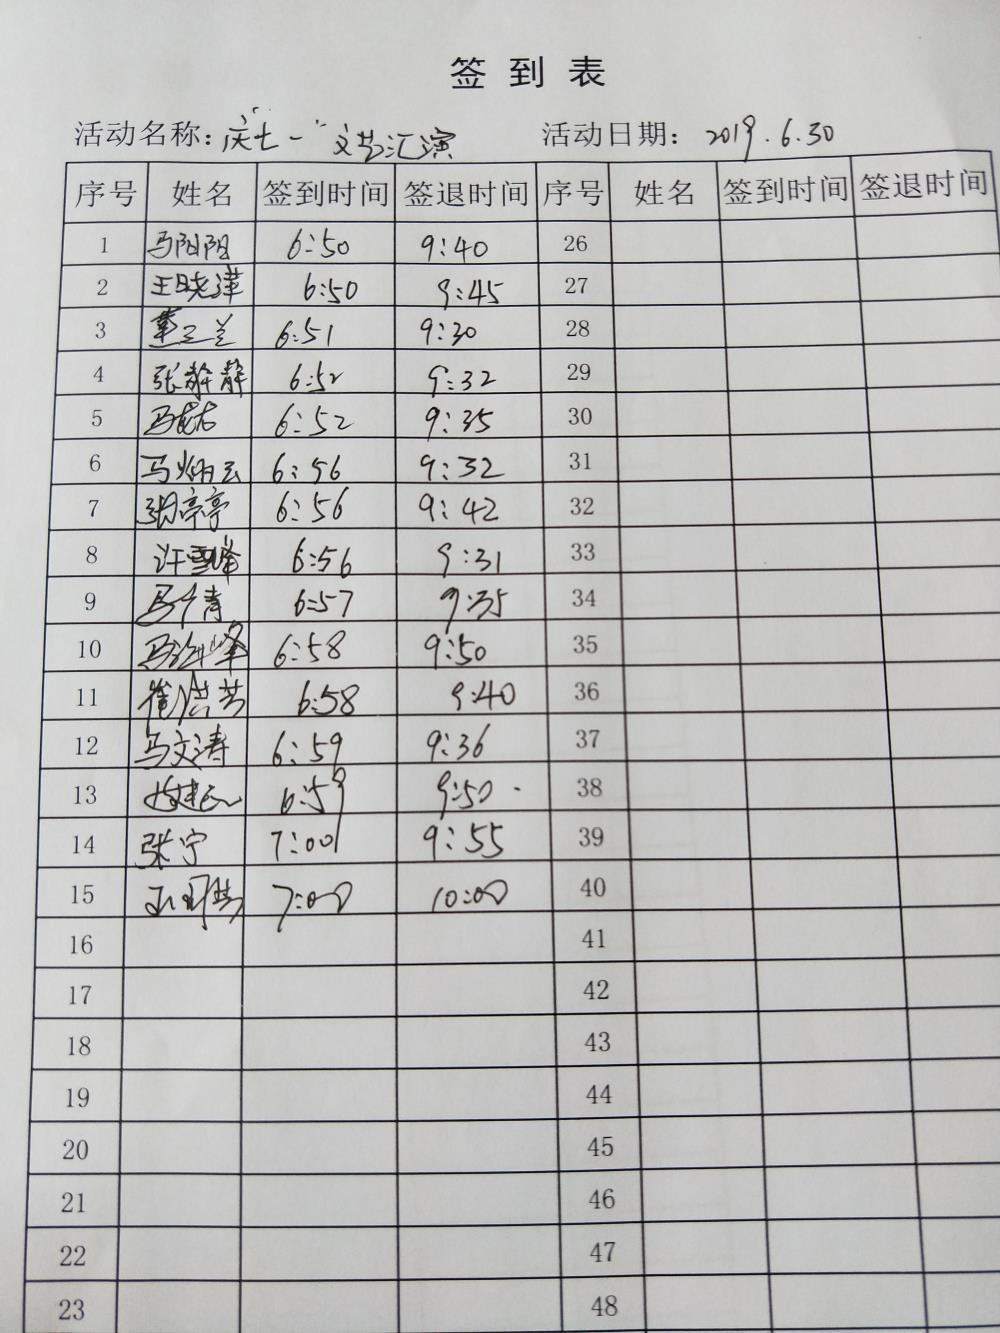 签到表
活动名称：庆"七一"文艺汇演 活动日期：2019.6.30
序号 姓名 签到时间 签退时间 序号 姓名 签到时间 签退时间
1 马阳阳 6:50 9:40 26
2 王晓津 6:50 9:45 27
3 6:51 9:30 28
4 张静静 6:52 9:32 29
5 6:52 9:35 30
6 马炳云 6:56 9:32 31
7 胡亭亭 6:56 9:42 32
8 许雪峰 6:56 9:31 33
9 6:57 9:35 34
10 6:58 9:50 35
11 6:58 9:40 36
12 马文涛 6:59 9:36 37
13 6:59 9:50 38
14 张宁 7:00 9:55 39
15 7:00 10:00 40
16 41
17 42
18 43
19 44
20 45
21 46
22 47
23 48